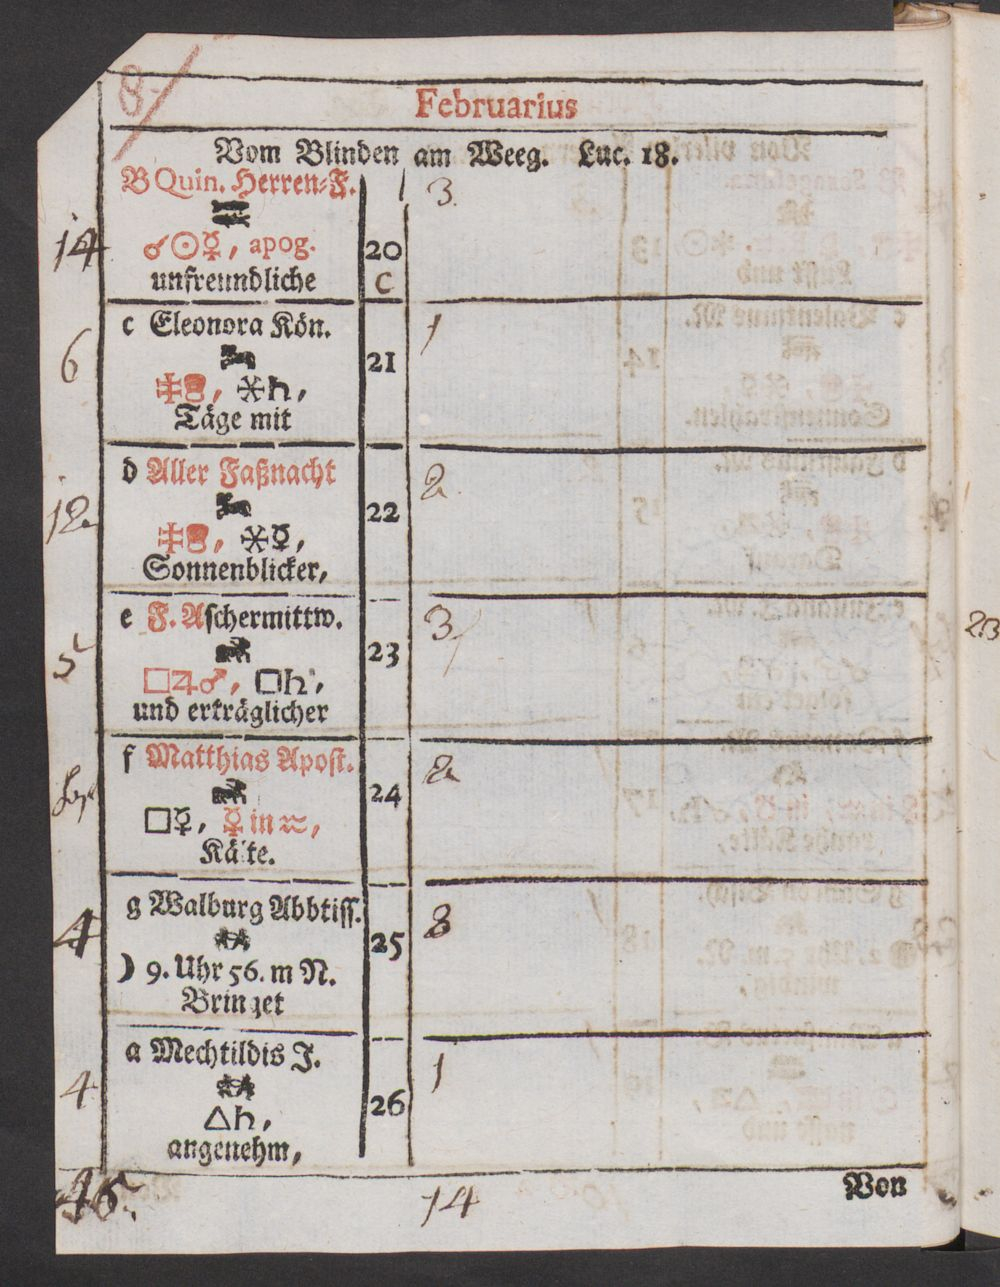 8.
Februarius
Vom Blinden am Weeg. Luc. 18.
B Quin. Herren-F.
3.
14
♂☉☿, apog. 20
unfreundliche C
c Eleonora Kön.
1
6
21
✳♄,
Täge mit
d Aller Faßnacht
2.
12.
22
✳☿,
Sonnenblicker,
e F. Aschermittw.
3
5
23
□♃♂, □♄,
und erträglicher
f Matthias Apost.
2
24
□☿, ☿ in ♒,
Kälte.
g Walburg Abbtiss.
4
25
8
☽ 9. Uhr 56. m N.
Bringet
a Mechtildis J.
4
1
26
△♄,
angenehm,
14
Von
23